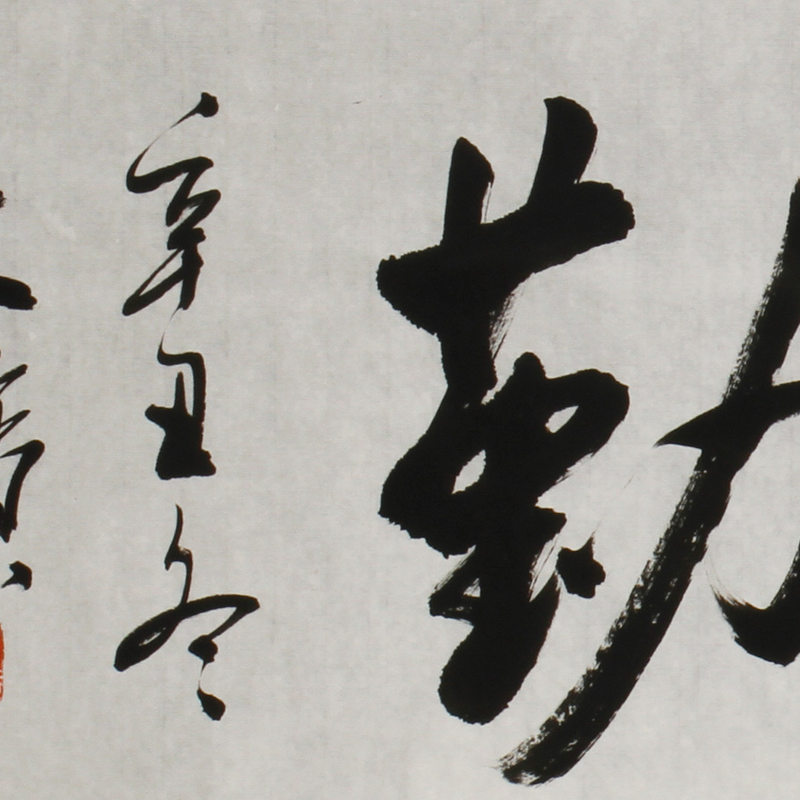 勤
辛丑冬